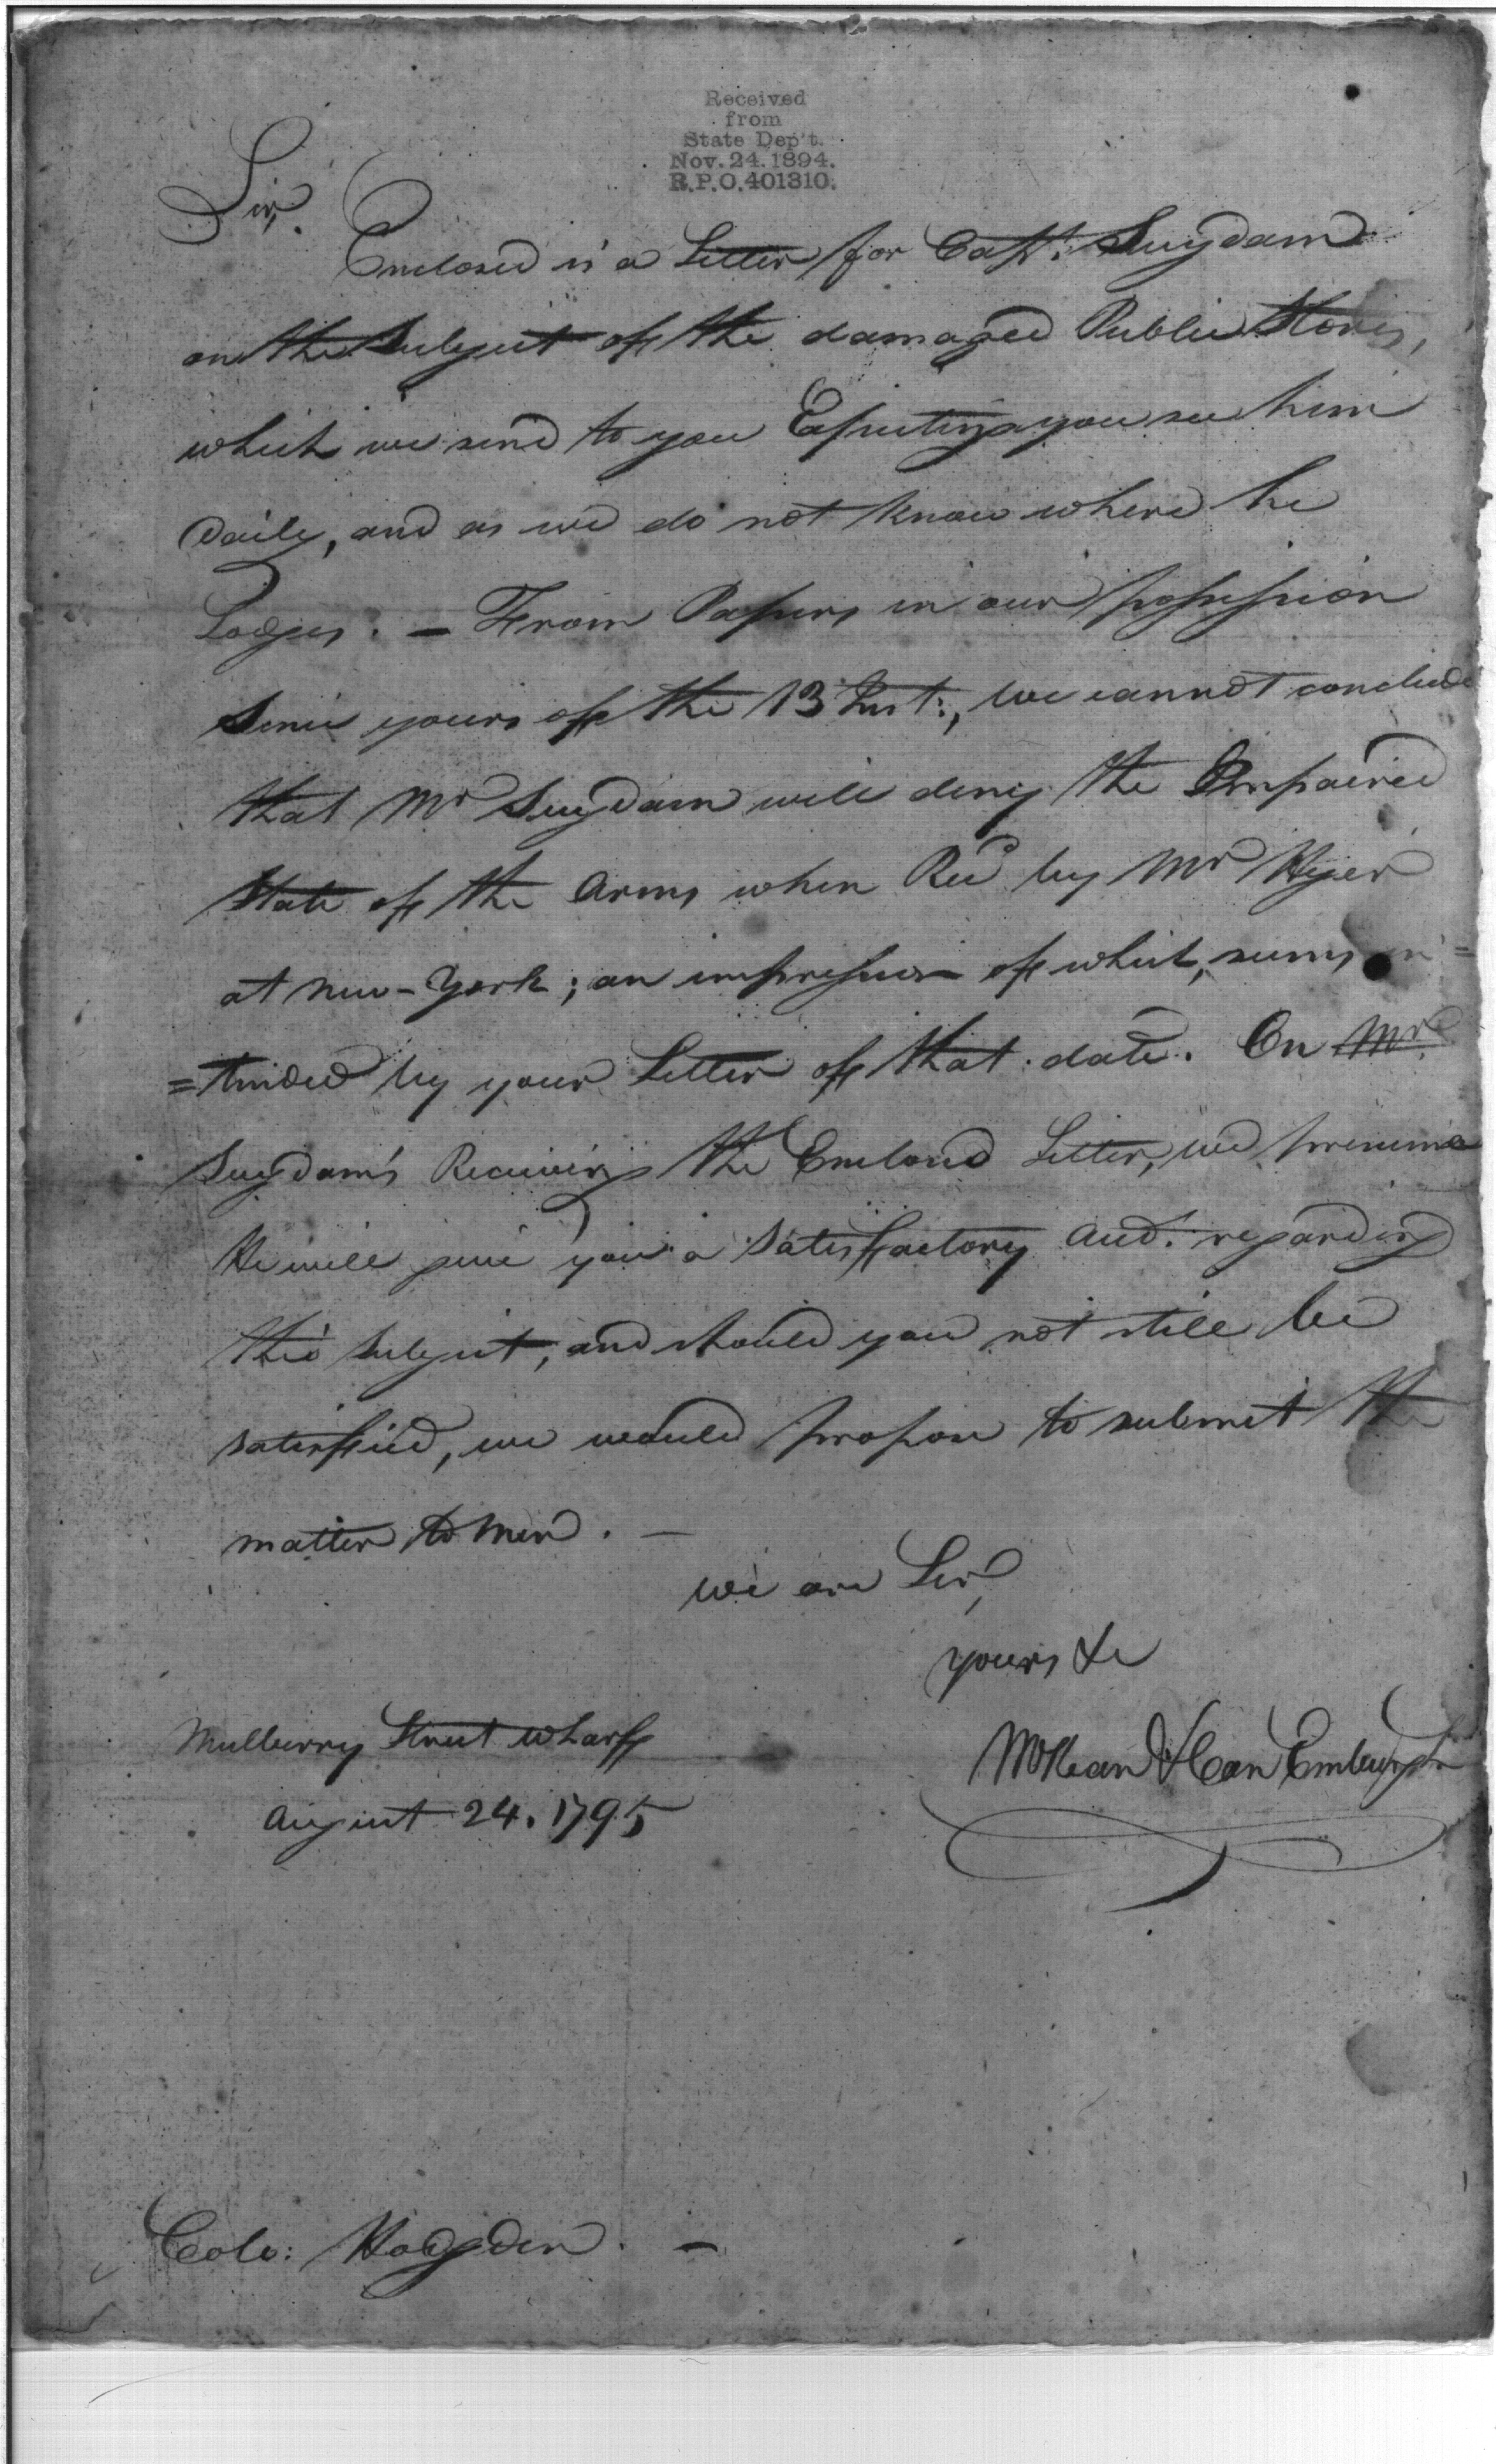 Received
from
State Dep't.
Nov. 24. 1894.
R.P.O. 401310.
Sir,
Enclosed is a Letter for Capt: Suydam
on the Subject of the damaged Public Stores,
which we send to you Expecting you see him
Daily, and as we do not know where he
Lodges. — From Papers in our possession
Since yours of the 13 Inst:, we cannot conclude
that Mr Suydam will deny the Impaired
State of the Arms when Recd by Mr Hyer
at New-York; an impression of which, seems in=
=tended by your Letter of that date. On Mr.
Suydam's Receiving the Enclosed Letter, we presume
He will give you a Satisfactory Acct. regarding
this Subject, and should you not still be
satisfied, we would propose to submit the
matter to Men. —
We are Sir,
yours &c
McKean & Van Emburgh
Mulberry Street Wharff
August 24. 1795
Colo: Hodgden. —